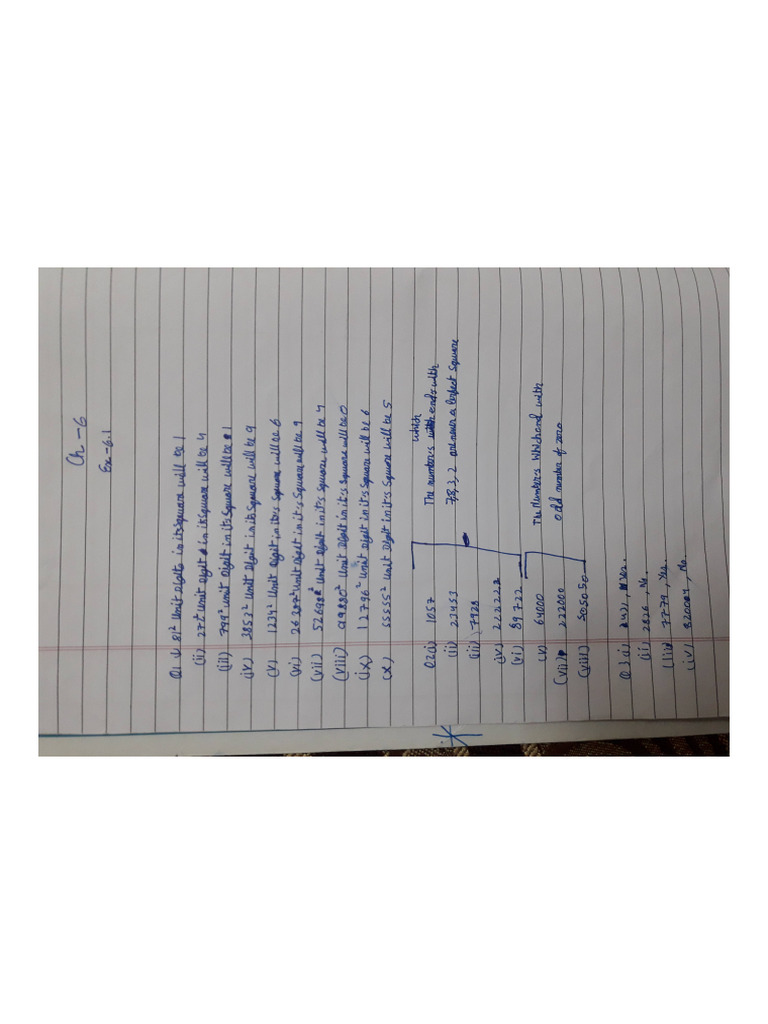 Ch-6
Ex-6.1
Q1 i) 81² Unit Digit in its square will be 1
(ii) 272 Unit Digit in its square will be 4
(iii) 799² Unit Digit in its square will be 1
(iv) 3853² Unit Digit in its square will be 9
(v) 1234² Unit Digit in it's square will be 6
(vi) 26387² Unit Digit in it's square will be 9
(vii) 52698² Unit Digit in it's square will be 4
(viii) 99880² Unit Digit in it's square will be 0
(ix) 12796² Unit Digit in it's square will be 6
(x) 55555² Unit Digit in it's square will be 5
Q2(i) 1057
(ii) 23453
(iii) 7928
(iv) 222222
(vi) 89722
The number's which ends with
7,8,3,2 are never a perfect square
(v) 64000
(vii) 222000
(viii) 505050
The Number's Which end with
odd number of zero
Q3(i) 431, Yes.
(ii) 2826, No.
(iii) 7779, Yes.
(iv) 82004, No.